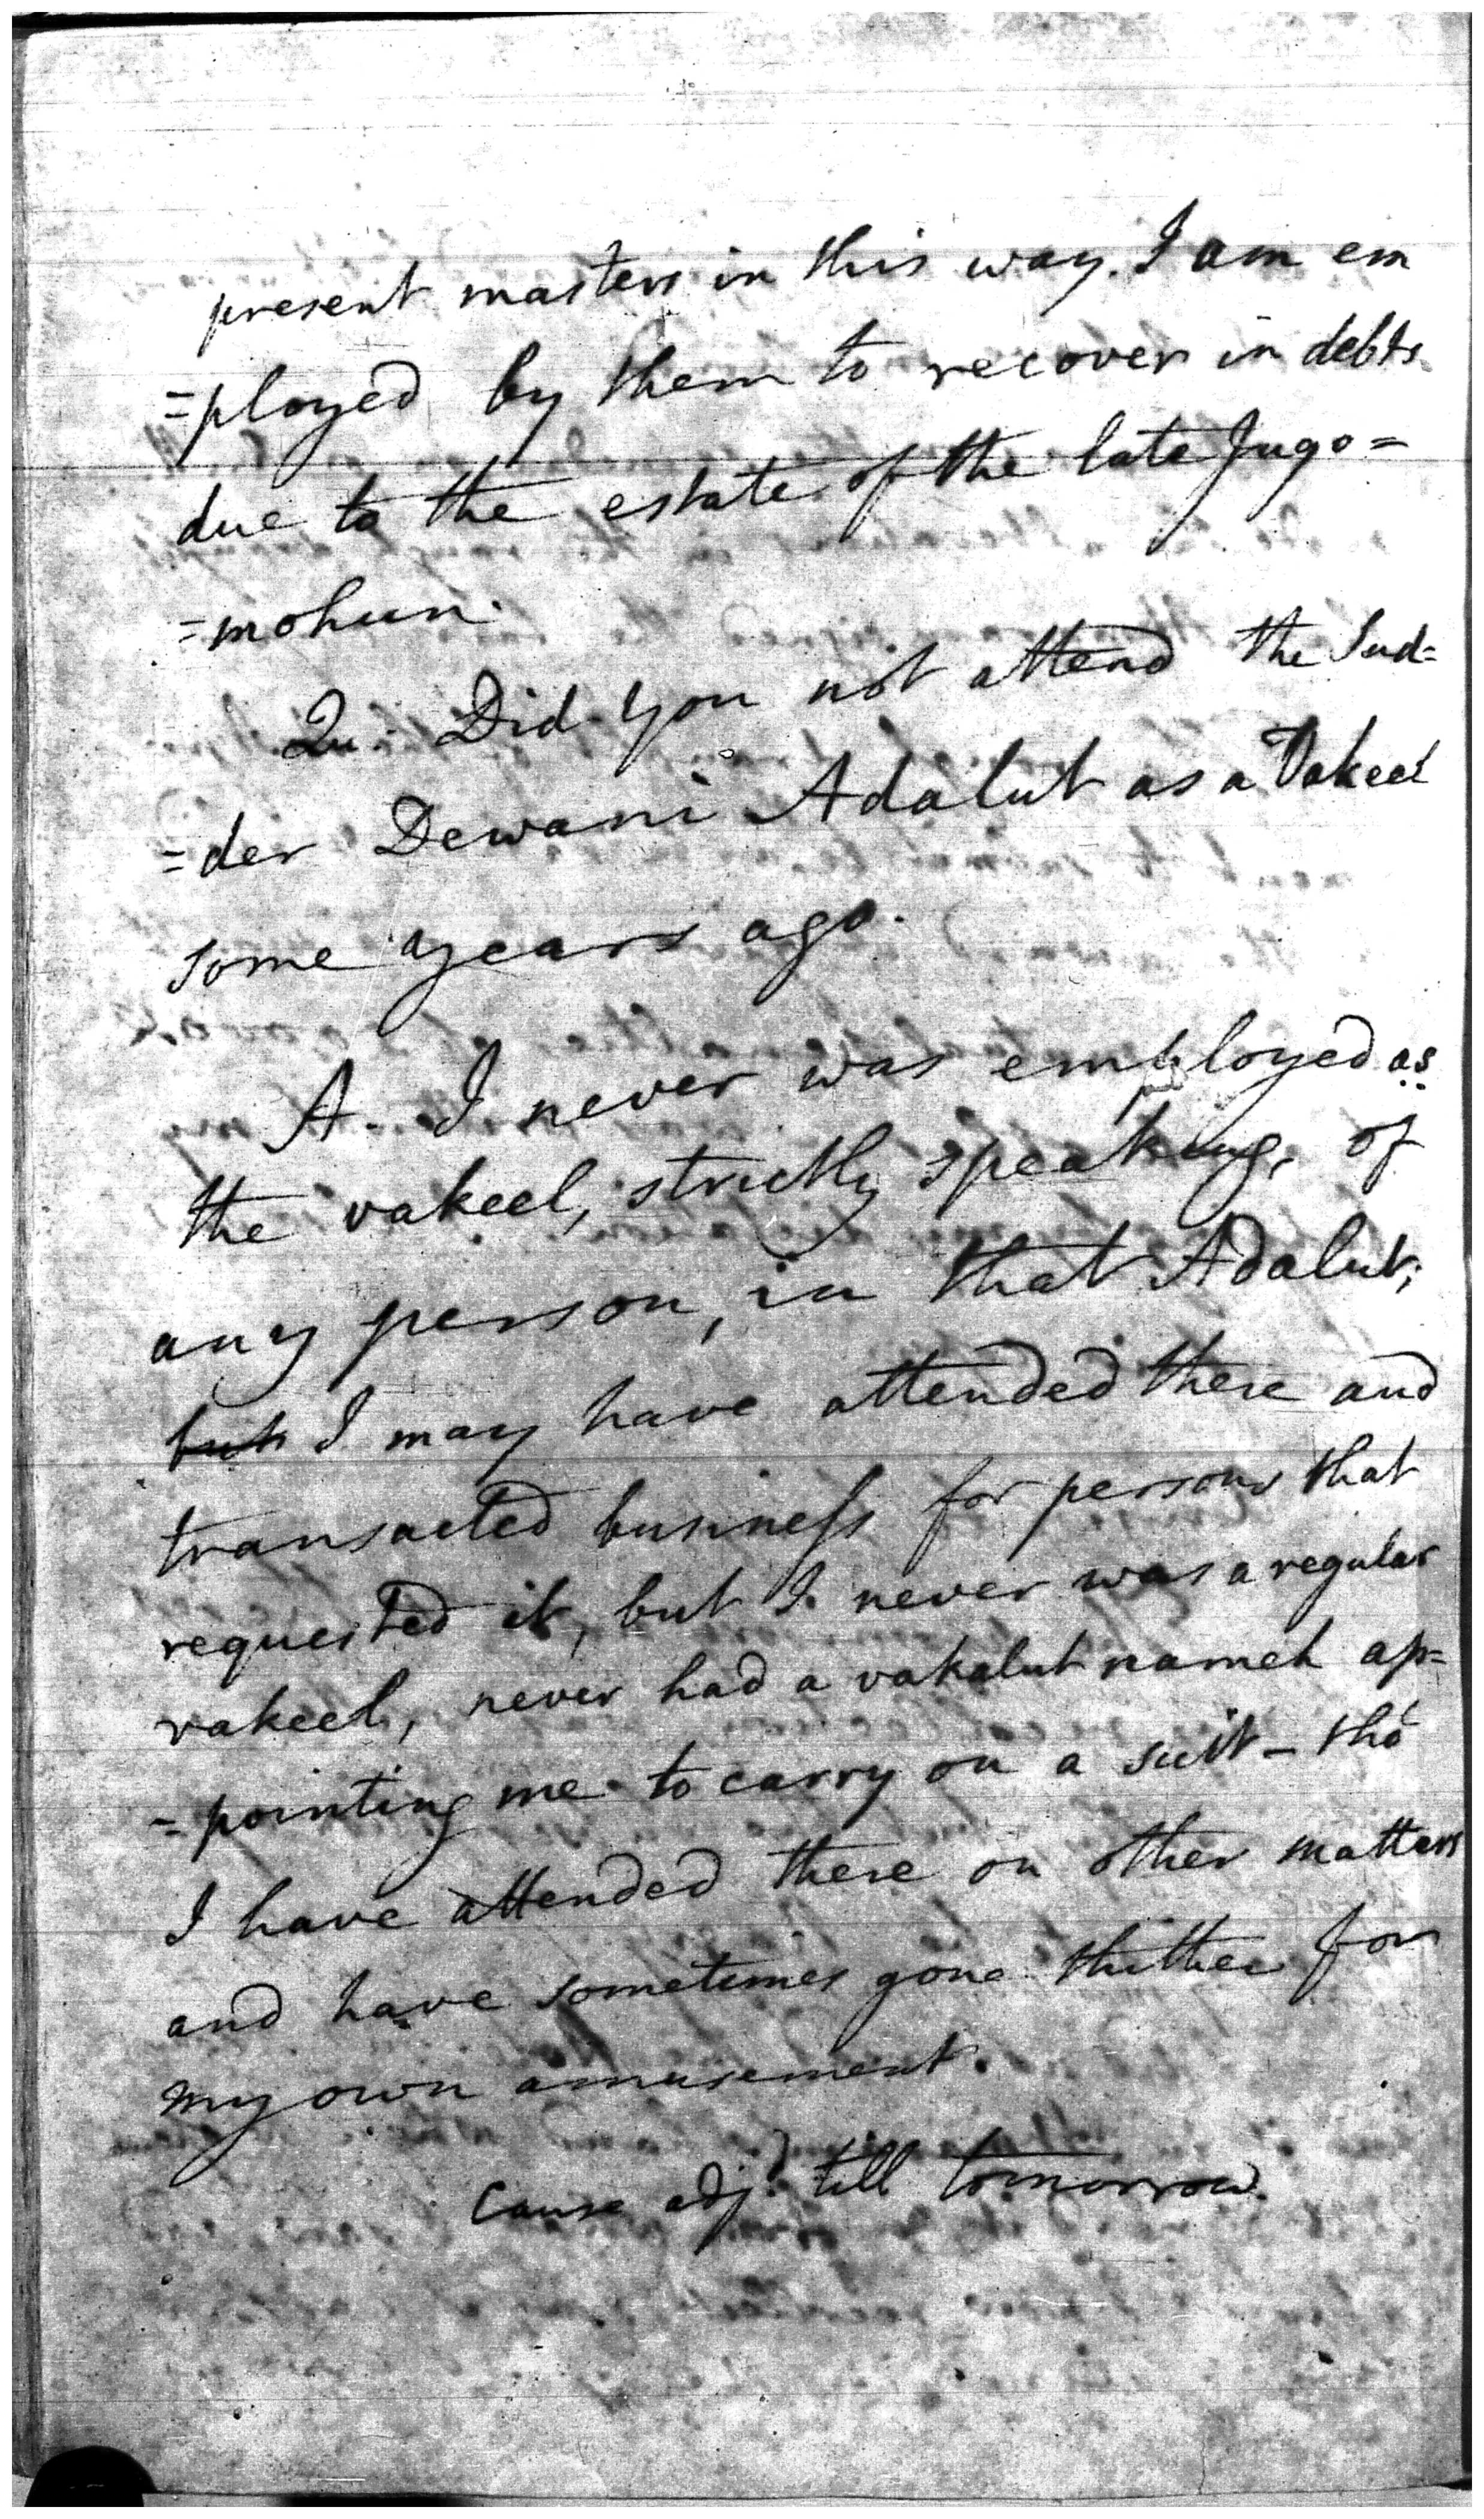 present masters in this way. I am em
=ployed by them to recover in debts
due to the estate of the late Jugo=
=mohun.
Qu. Did you not attend the Sud=
=der Dewani Adalut as a Vakeel
some years ago.
A. I never was employed as
the vakeel, strictly speaking, of
any person, in that Adalut;
but I may have attended there and
transacted business for persons that
requested it, but I never was a regular
vakeel, never had a vakalut nameh ap=
=pointing me to carry on a suit - tho'
I have attended there on other matters
and have sometimes gone thither for
my own amusement.
Cause adjd. till tomorrow.